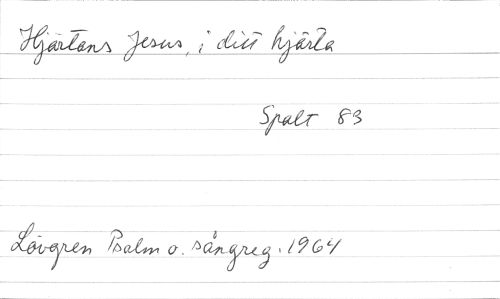 Hjärtans Jesus, i ditt hjärta
Spalt 83
Lövgren Psalm o. sångreg. 1964